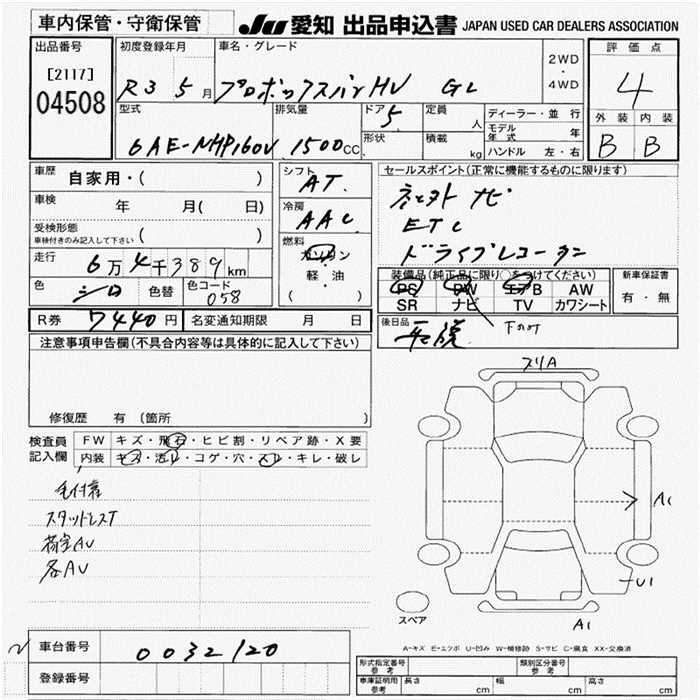 車内保管・守衛保管
JU 愛知 出品申込書 JAPAN USED CAR DEALERS ASSOCIATION
出品番号
[2117]
04508
初度登録年月
R3 5月
車名・グレード
プロボックスバンHV GL
2WD
・
4WD
評価点
4
外装 内装
B B
型式
6AE-NHP160V
排気量
1500cc
ドア
5
形状
定員
人
積載
kg
ディーラー・並行
モデル年式 年
ハンドル 左・右
車歴
自家用・( )
車検
年 月( 日)
受検形態
車検付きのみ記入して下さい ( )
走行
6万4千389km
色
シロ
色替
色コード
058
シフト
AT.
冷房
AAC
燃料
ガソリン
・
軽・油
( )
セールスポイント(正常に機能するものに限ります)
ナビ
ETC
ドライブレコーダー
装備品(純正品に限り○をつけてください)
PS PW エアB AW
SR ナビ TV カワシート
Foot
新車保証書
有・無
後日品
R券 7440円
名変通知期限 月 日
注意事項申告欄(不具合内容等は具体的に記入して下さい)
修復歴 有 (箇所 )
検査員
記入欄
FW キズ・飛石・ヒビ割・リペア跡・X要
内装 キズ・汚レ・コゲ・穴・スレ・キレ・破レ
毛付着
スタッドレスT
荷室AU
各AU
スリA
A1
U1
A1
スペア
A-キズ E-エクボ U-凹み W-補修跡 S-サビ C-腐食 XX-交換済
車台番号
0032120
登録番号
形式指定番号
参考
類別区分番号
参考
車庫証明用
参考
長さ cm
幅 cm
高さ cm